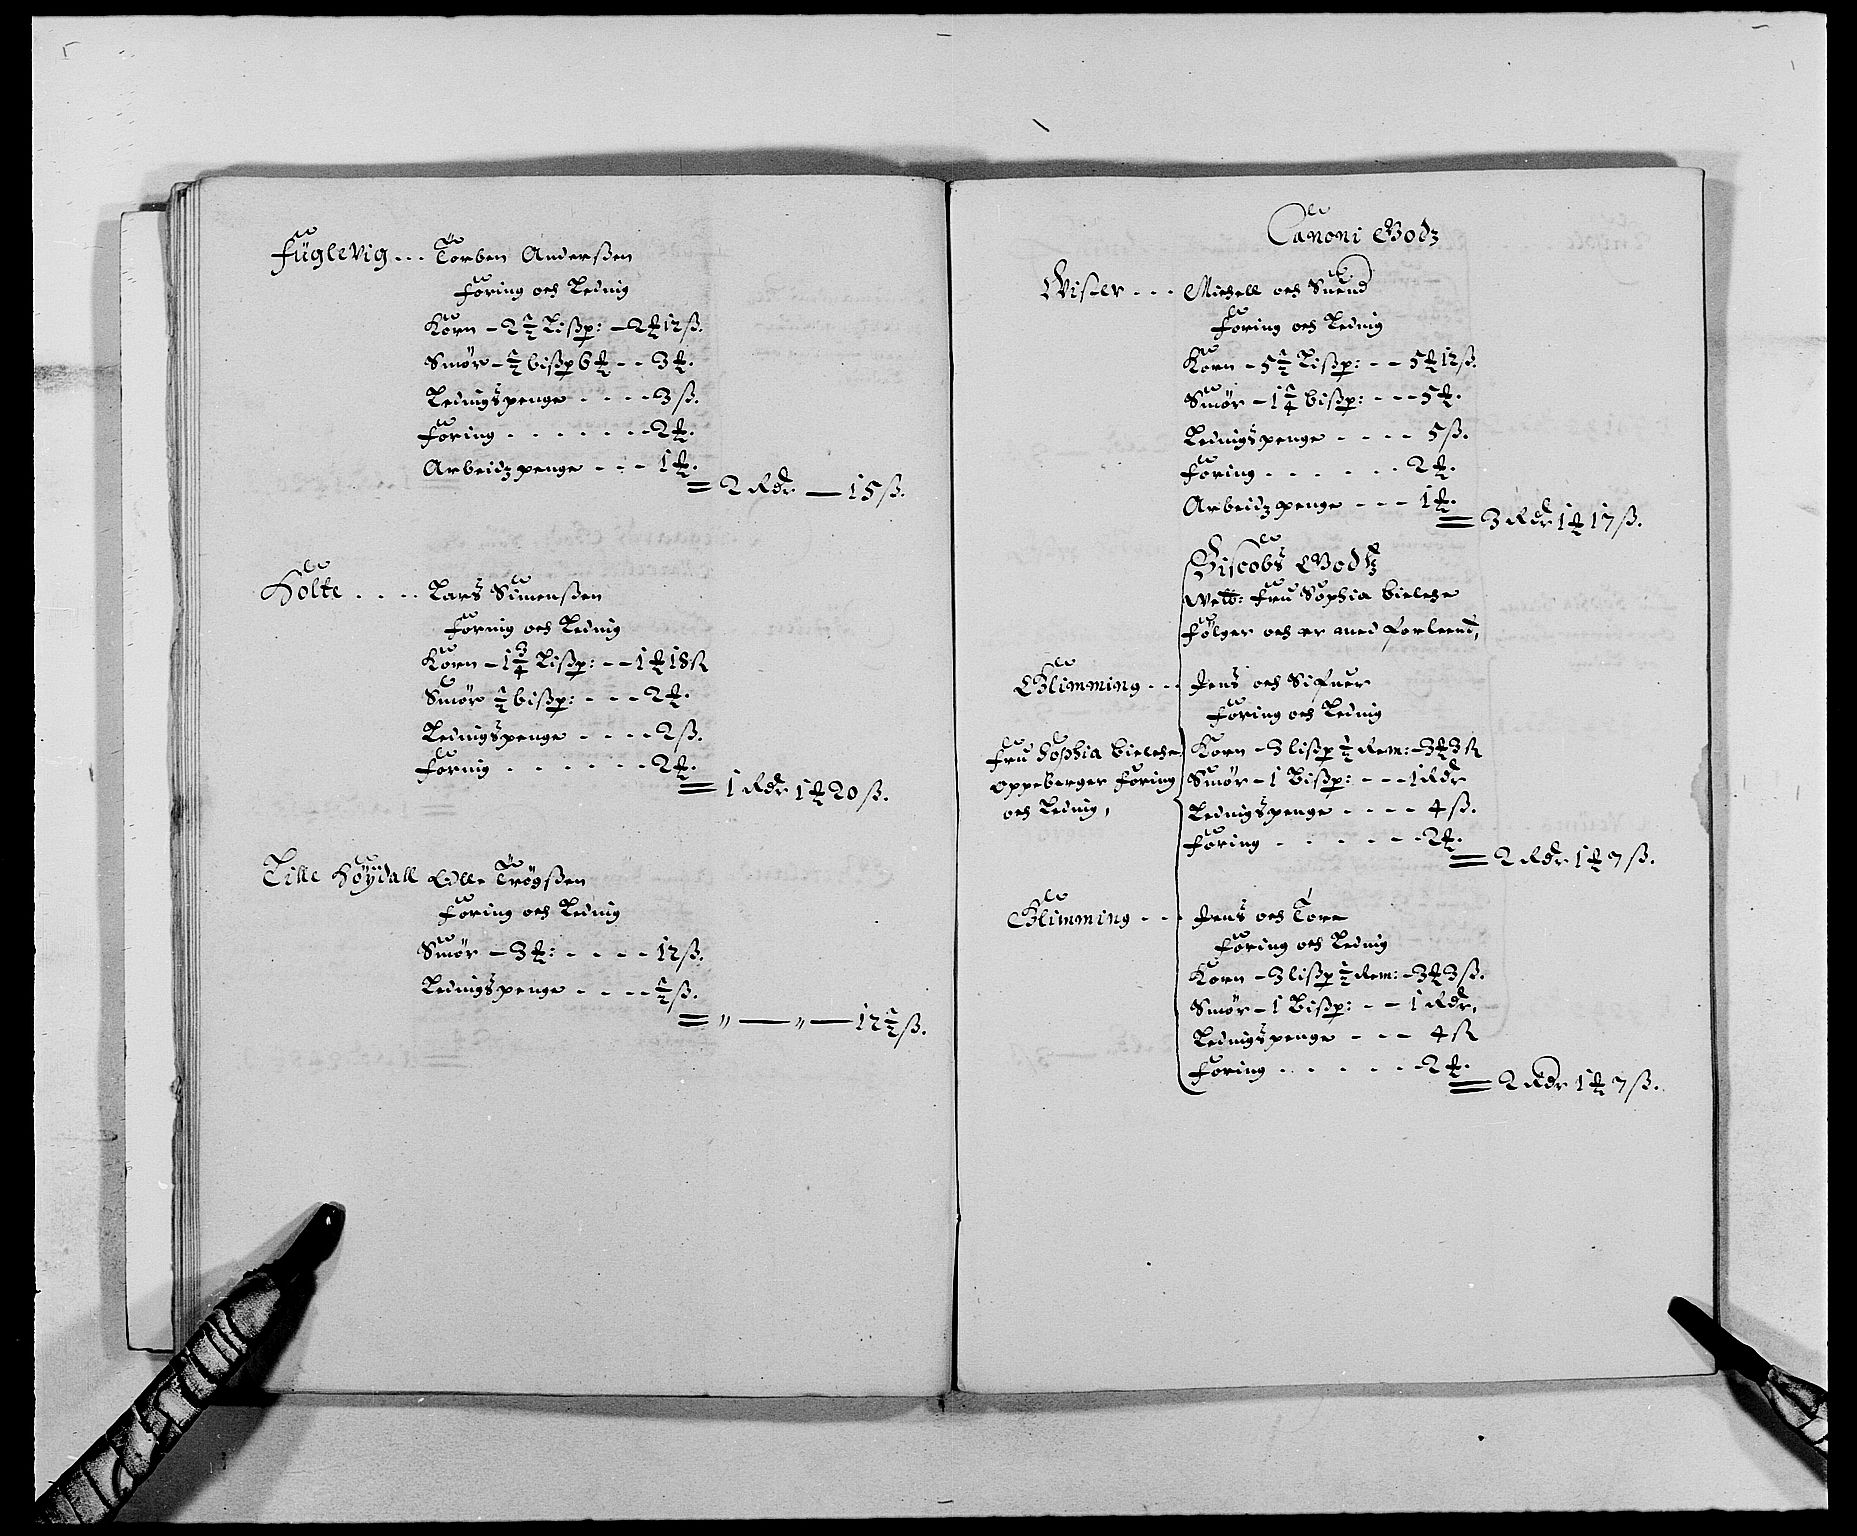 Fuglevig... Torben Anderßen
Foring och Leding
Korn - 2 1/2 Lißp: - 2 ℔ 12 ß.
Smør - 1/2 bißp 6 ℔ - - 3 ℔.
Ledingspenge - - - - 3 ß.
Foring - - - - - - - 2 ℔.
Arbeidzpenge - - - 1 ℔.
= 2 Rdr — 15 ß.
Holte.... Lars Simenßen
Foring och Leding
Korn - 1 3/4 Lißp: - - 1 ℔ 18 ß
Smør 1/2 bißp: - - - 2 ℔.
Ledingspenge - - - - 2 ß.
Foring - - - - - - 2 ℔.
= 1 Rdr 1 ℔ 20 ß.
Lille Høydall Trøgßen
Foring och Leding
Smør - 3 ℔: - - - - 12 ß.
Ledingspenge - - - - 1/2 ß.
= " — " — 12 1/2 ß.
Canoni Godz
Wister... Michell och Suend
Foring och Leding
Korn - 5 1/2 Lißp: - - 5 ℔ 12 ß.
Smør - 1 1/4 bißp: - - - 5 ℔.
Ledingspenge - - - - 5 ß.
Foring - - - - - - 2 ℔.
Arbeidzpenge - - - 1 ℔.
= 3 Rdr 1 ℔ 17 ß.
Biscobs Godtz
Welb: Fru Sophia Bielche
følger och er med forleend,
Glimming... Jens och Sifuer
Foring och Leding
Fru Sophia Bielche
oppeberger Foring
och Leding,
Korn - 3 lißp 1/2 Rem: - 3 ℔ 3 ß
Smør - 1 Bißp: - - - 1 Rdr
Ledingspenge - - - - 4 ß.
Foring - - - - - - 2 ℔.
= 2 Rdr 1 ℔ 7 ß.
Glimming - - - Jens och Tore
Foring och Leding
Korn - 3 lißp 1/2 Rem: - 3 ℔ 3 ß.
Smør - 1 Bißp: - - 1 Rdr,
Ledingspenge - - - 4 ß
Foring - - - - - - 2 ℔.
= 2 Rdr 1 ℔ 7 ß.